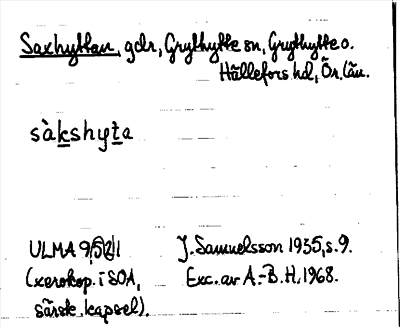 Saxhyttan, gdr, Grythytte sn, Grythytte o.
Hällefors hd, Ör. län.
sàkshyta
ULMA 9521 J. Samuelsson 1935, s. 9.
(xerokop. i SOA, Exc. av A.-B. H. 1968.
särsk. kapsel).